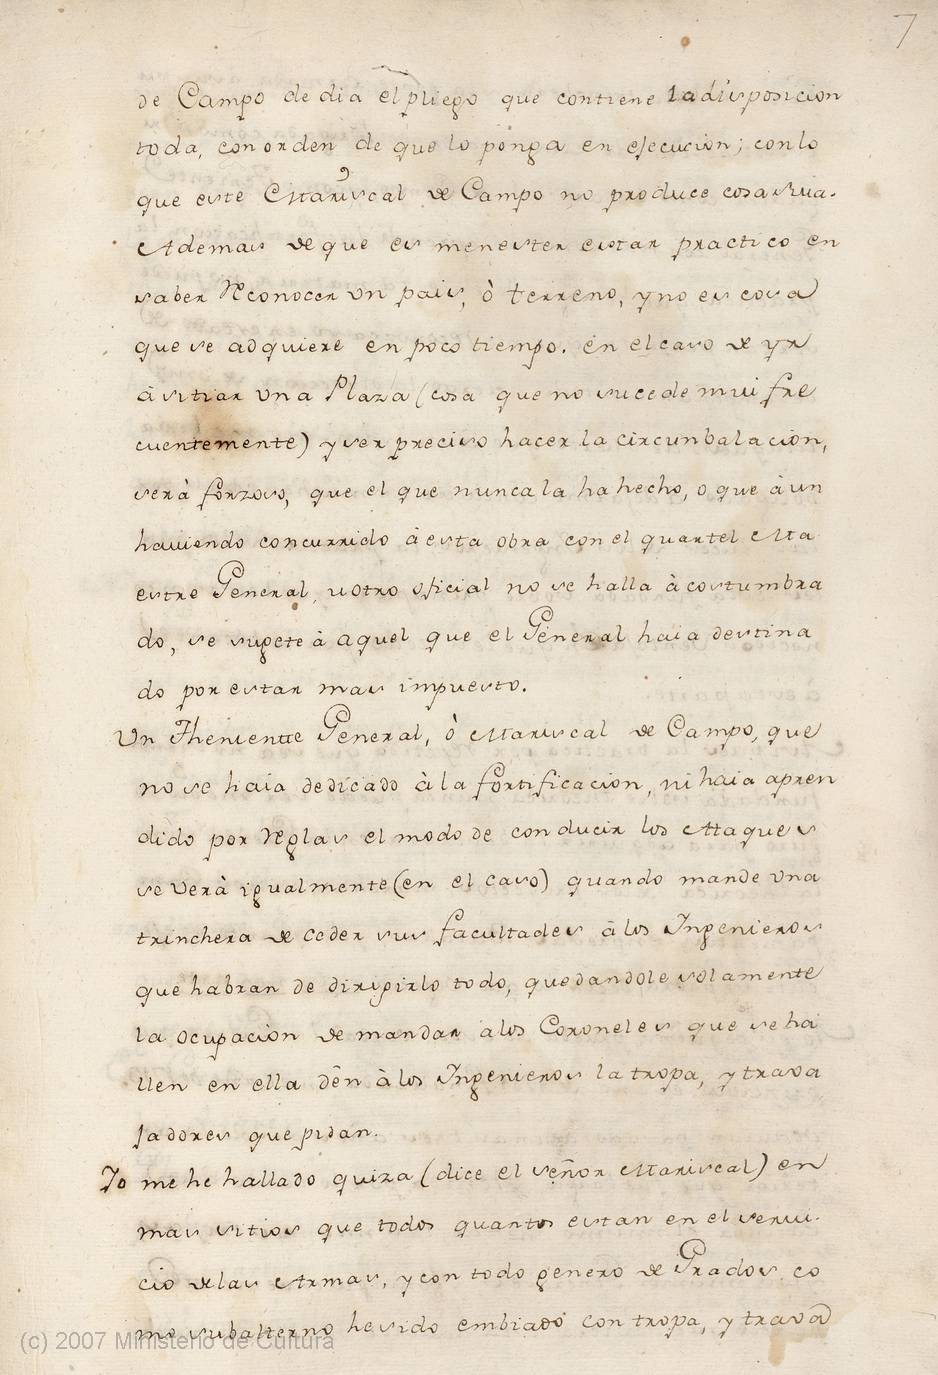 7
de Campo de dia el pliego que contiene la disposicion
toda, con orden de que lo ponga en ejecucion; con lo
que este Mariscal de Campo no produce cosa suia.
Ademas de que es menester estar practico en
saber Reconocer un pais, ò terreno, y no es cosa
que se adquiere en poco tiempo. en el caso de yr
à sitiar una Plaza (cosa que no sucede mui fre
cuentemente) y ser preciso hacer la circunbalacion,
serà forzoso, que el que nunca la ha hecho, o que àun
haviendo concurrido à esta obra con el quartel Ma
estre General, u otro oficial no se halla àcostumbra
do, se sugete à aquel que el General haia destina
do por estar mas impuesto.
Un Theniente General, ò Mariscal de Campo, que
no se haia dedicado à la fortificacion, ni haia apren
dido por Reglas el modo de conducir los Ataques
se verà igualmente (en el caso) quando mande una
trinchera de ceder sus facultades à los Ingenieros
que habran de dirigirlo todo, quedandole solamente
la ocupacion de mandar a los Coroneles que se ha
llen en ella dèn à los Ingenieros la tropa, y trava
jadores que pidan.
Yo me he hallado quiza (dice el señor Mariscal) en
mas sitios que todos quantos estan en el servi.
cio de las Armas, y con todo genero de Grados. co
mo subalterno he sido embiado con tropa, y trava
(c) 2007 Ministerio de Cultura